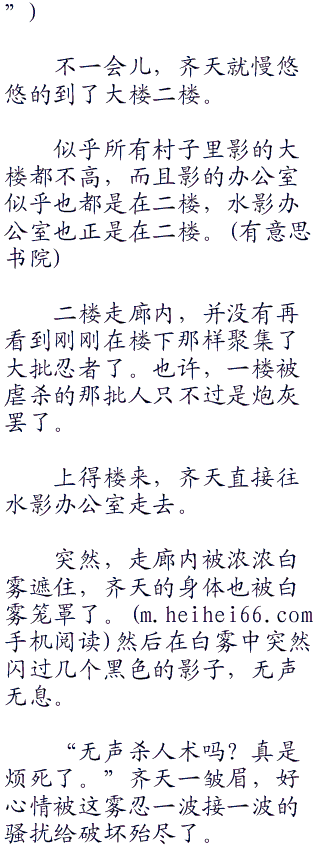 ”)
不一会儿，齐天就慢悠
悠的到了大楼二楼。
似乎所有村子里影的大
楼都不高，而且影的办公室
似乎也都是在二楼，水影办
公室也正是在二楼。(有意思
书院)
二楼走廊内，并没有再
看到刚刚在楼下那样聚集了
大批忍者了。也许，一楼被
虐杀的那批人只不过是炮灰
罢了。
上得楼来，齐天直接往
水影办公室走去。
突然，走廊内被浓浓白
雾遮住，齐天的身体也被白
雾笼罩了。(m.heihei66.com
手机阅读)然后在白雾中突然
闪过几个黑色的影子，无声
无息。
“无声杀人术吗？真是
烦死了。”齐天一皱眉，好
心情被这雾忍一波接一波的
骚扰给破坏殆尽了。